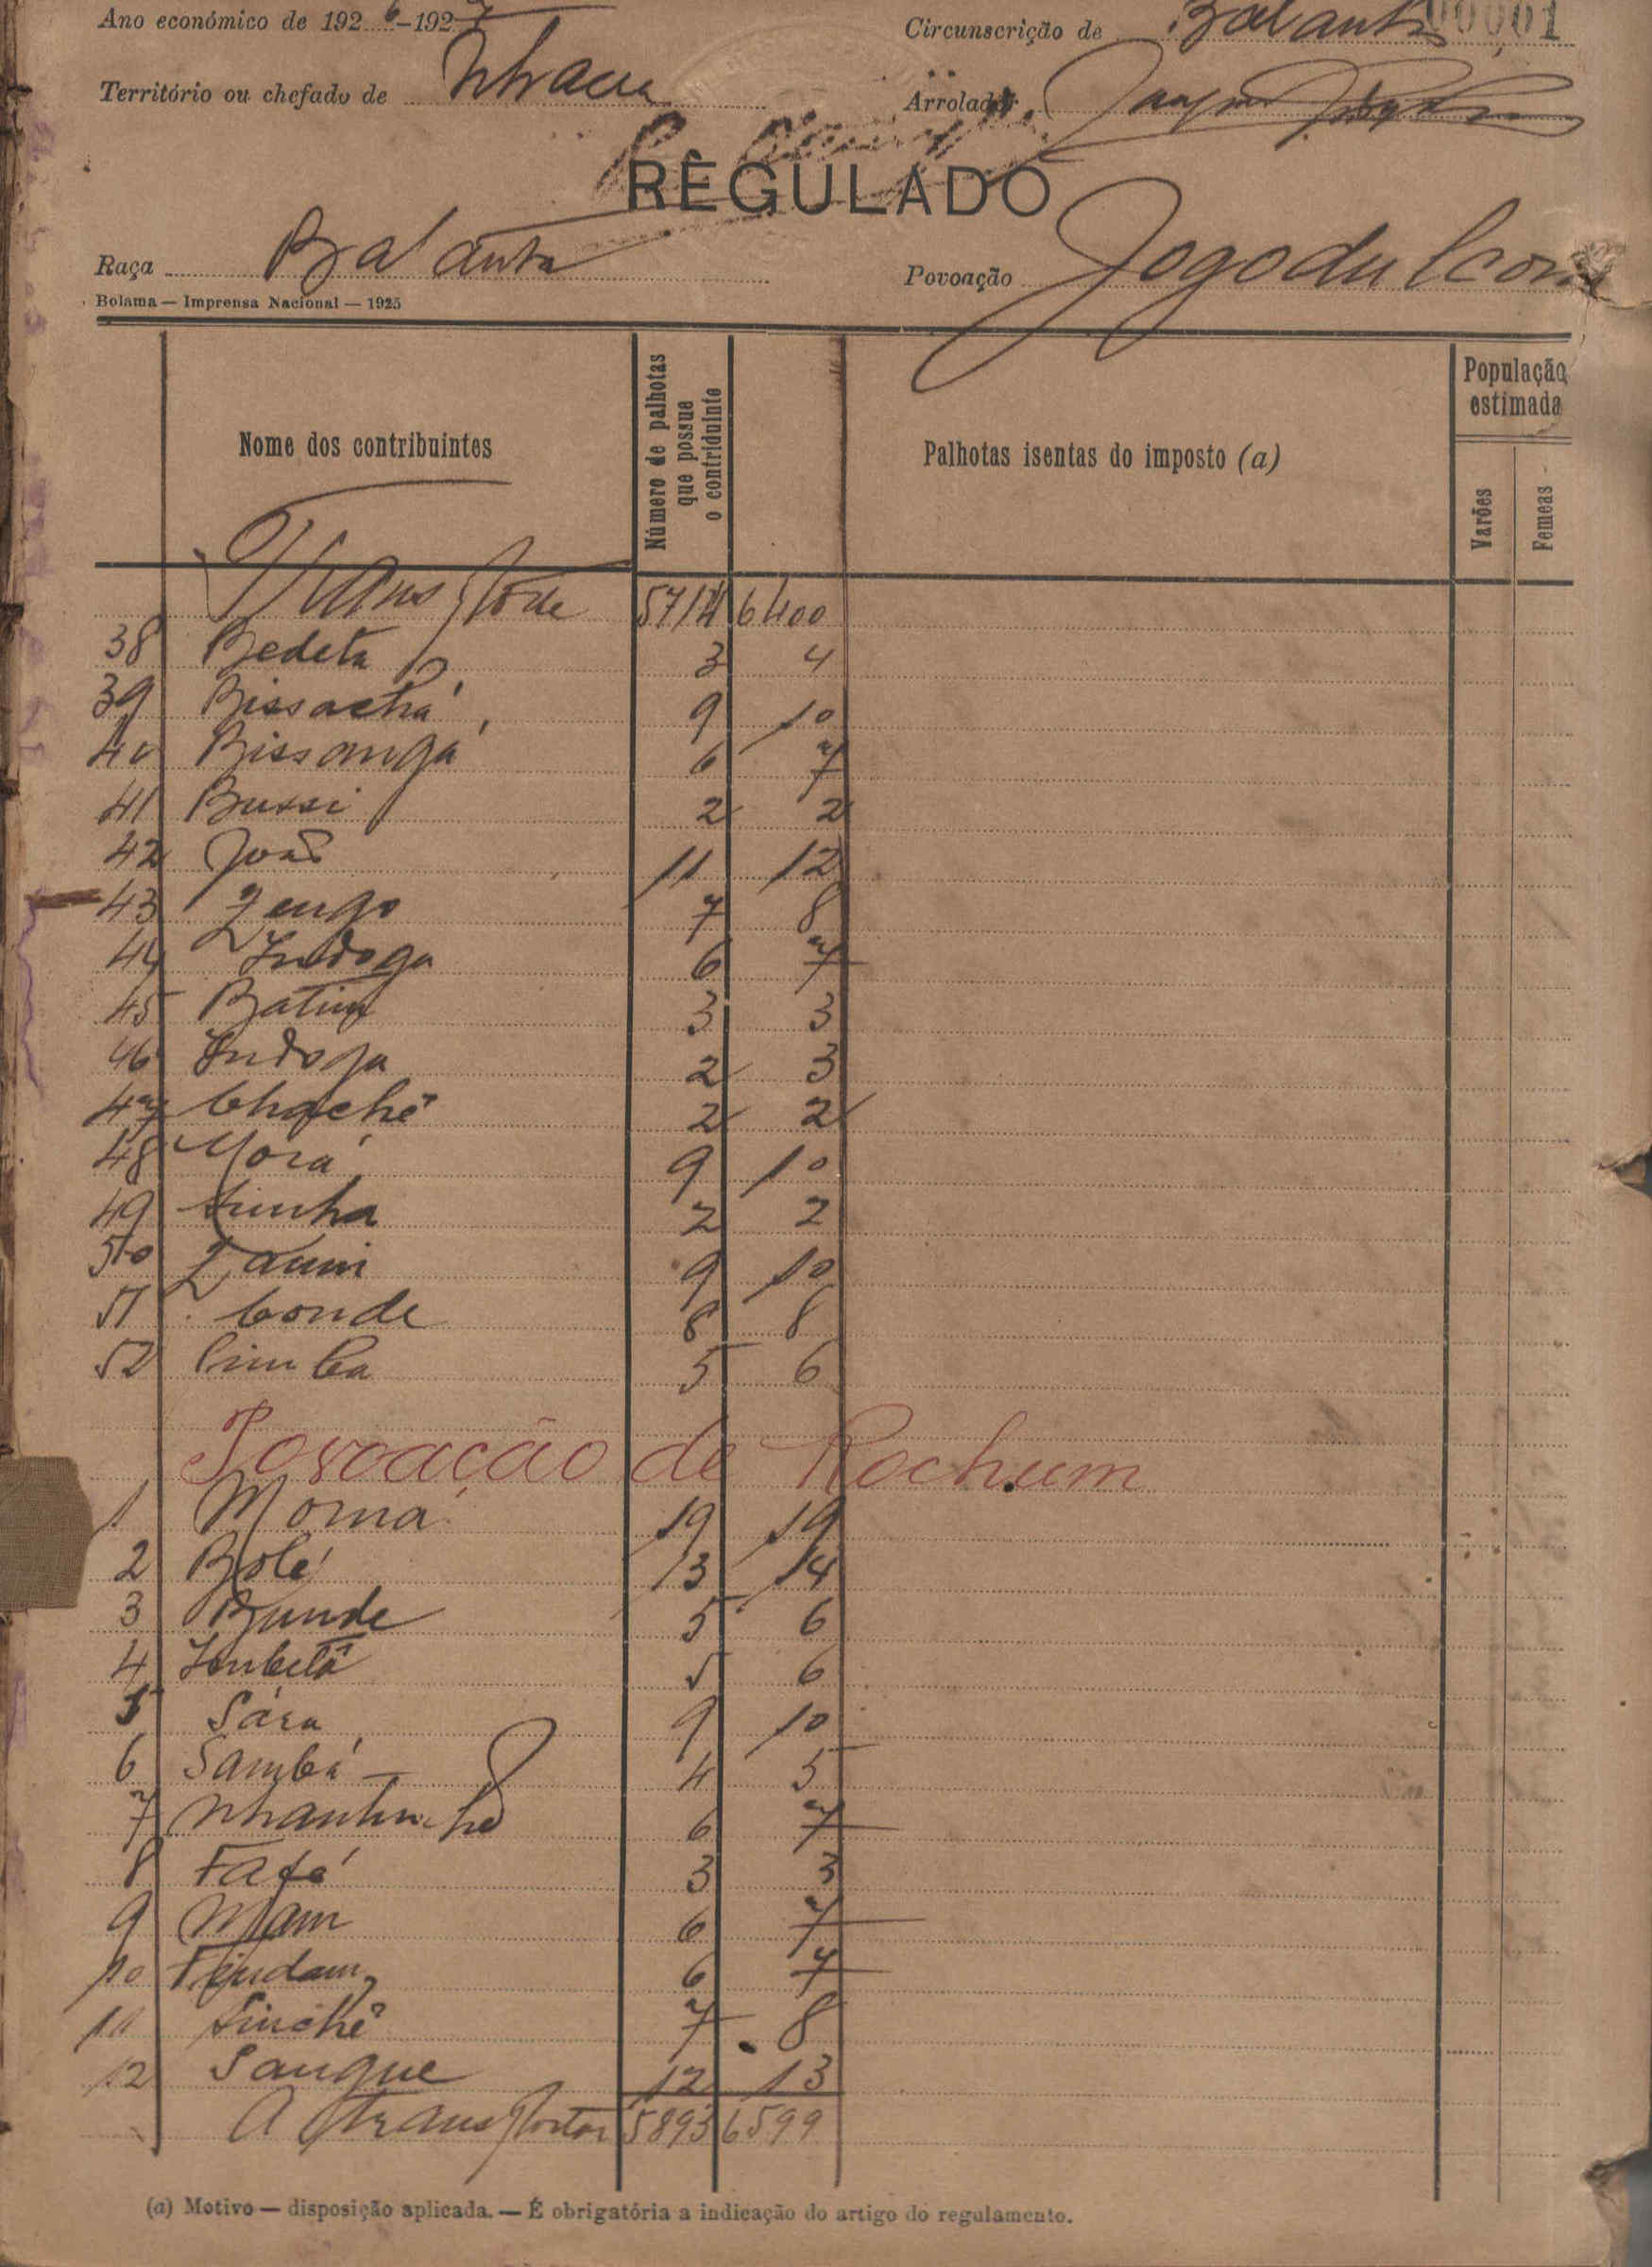 Ano económico de 1926-1927 Circunscrição de Balantas 00001
Território ou chefado de Nhacra Arrolador
REGULADO
Raça Balanta Povoação Jogodul
Bolama — Imprensa Nacional — 1925
Nome dos contribuintes Número de palhotas que possue o contriduinte Palhotas isentas do imposto (a) População estimada Varões Femeas
Transporte 5714 6400
38 Bedeta 3 4
39 Bissachá 9 10
40 Bissangá 6 7
41 Bussi 2 2
42 João 11 12
43 Zengo 7 8
44 Indoga 6 7
45 Batim 3 3
46 Indoga 2 3
47 Chachê 2 2
48 Morá 9 10
49 Sunha 2 2
50 Zaumi 9 10
51 Conde 8 8
52 Cimba 5 6
Povoação de Rochum
1 Morna 19 19
2 Bolé 13 14
3 Bunde 5 6
4 Imbetá 5 6
5 Sára 9 10
6 Sambá 4 5
7 6 7
8 Fafé 3 3
9 Mam 6 7
10 Findam 6 7
11 Sinchê 7 8
12 Sangue 12 13
A transportar 5893 6599
(a) Motivo — disposição aplicada. — É obrigatória a indicação do artigo do regulamento.